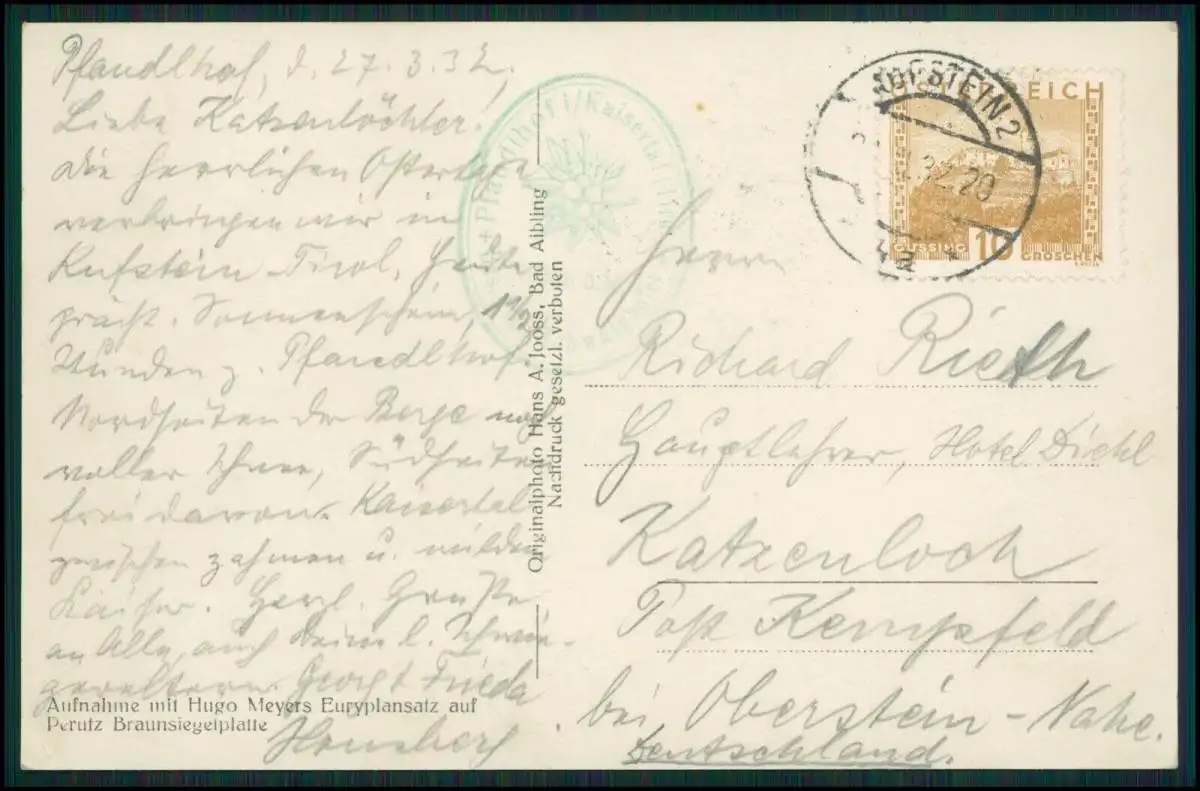 Pfandlhof, d. 27.3.32.
Liebe Katzenlöchler.
Die herrlichen Ostertage
verbringen wir in
Kufstein-Tirol, heute
prächt. Sonnenschein, 1 1/2
Stunden z. Pfandlhof.
Nordseiten der Berge noch
voller Schnee, Südseiten
frei davon. Kaisertal
zwischen zahmen u. wilden
Kaiser. Herzl. Grüße
an Alle, auch Deine l. Schwie-
gereltern. Georg & Frieda
Honsberg
Aufnahme mit Hugo Meyers Euryplansatz auf
Perutz Braunsiegelplatte
Originalphoto Hans A. Jooss, Bad Aibling
Nachdruck gesetzl. verboten
Pfandlhof i/Kaisertal
KUFSTEIN 2
32.20
ÖSTERREICH
GÜSSING 10 GROSCHEN
Herrn
Richard Rieth
Hauptlehrer, Hotel Diehl
Katzenloch
Post Kempfeld
bei Oberstein-Nahe.
Deutschland.